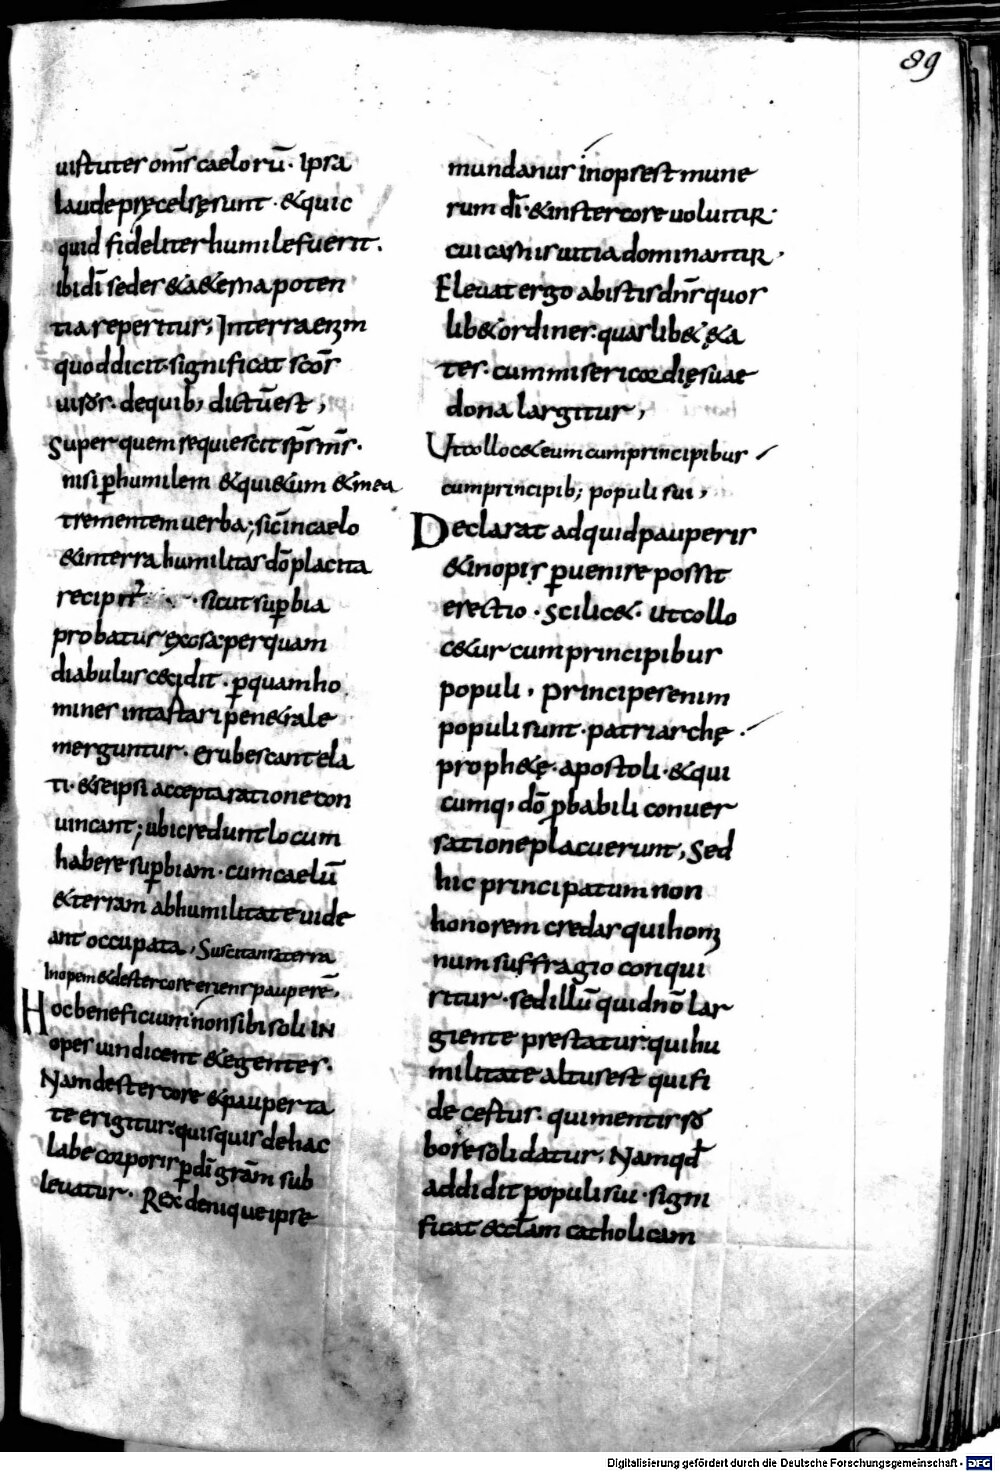 89
uistuter om̅s caeloru̅. Ipsa
laude pręcelsę sunt. & quic
quid fideliter humile fuerit.
ibi di̅ sedes & a&erna poten
tia reperitur; In terra enim
quod dicit. significat sc̅or
uiros. de quib; dictu̅ est,
super quem requiescit sp̅s m̅s.
nisi ꝑ humilem & qui&um & mea
trementem uerba; sic in caelo
& in terra humilitas do̅ placita
recipit . sicut suꝑbia
probatur exosa. per quam
diabulus cecidit. ꝑ quam ho
mines in tastari pen&rale
merguntur. erubescant ela
ti. & se ipsi accepta ratione con
uincant; ubi credunt locum
habere suꝑbiam. cum caelu̅
& terram ab humilitate uide
ant occupata, Suscitans a terra
Inopem & de stercore eriens paupere̅,
Hoc beneficium non sibi soli in
opes uindicent & egentes.
Nam de stercore & pauperta
te erigitur. quisquis de hac
labe corporis ꝑ di̅ gra̅m sub
leuatur. Rex denique ipse
mundanus inops est mune
rum di̅. & in stercore uoluitur.
cui carnis uitia dominantur.
Eleuat ergo ab istis dn̅s quos
lib& ordines. quaslib& & ę
tes. cum misericordię suae
dona largitur,
Ut colloc& eum cum principibus
cum principib; populi sui,
Declarat ad quid pauperis
& inopis ꝑuenire possit
erectio. scilic&. ut collo
c&ur cum principibus
populi, principes enim
populi sunt. patriarchę.
proph&ę. apostoli. & qui
cumq, do̅ ꝓbabili conuer
satione placuerunt, Sed
hic principatum non
honorem credas qui homi
num suffragio conqui
ritur. sed illu̅ quid no̅ lar
giente prestatur. qui hu
militate altus est qui fi
de cestur. qui mentis ro
bore solidatur; Nam qd̅
addidit populi sui. signi
ficat eccl̅am catholicam
Digitalisierung gefördert durch die Deutsche Forschungsgemeinschaft - DFG